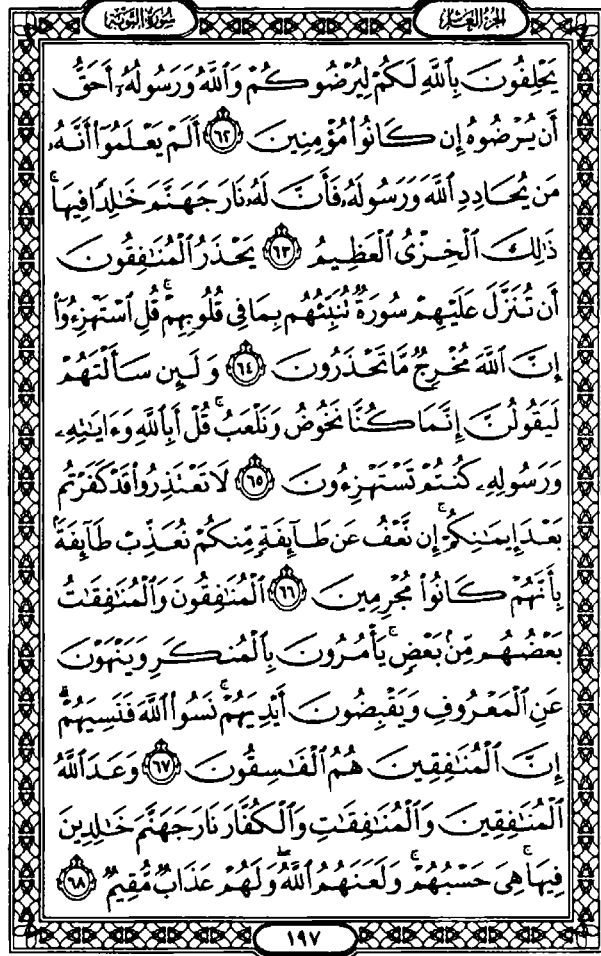 سُورَةُ التَّوْبَةِ
الجزء العاشر
يَحْلِفُونَ بِٱللَّهِ لَكُمْ لِيُرْضُوكُمْ وَٱللَّهُ وَرَسُولُهُۥٓ أَحَقُّ
أَن يُرْضُوهُ إِن كَانُوا۟ مُؤْمِنِينَ ٦٢ أَلَمْ يَعْلَمُوٓا۟ أَنَّهُۥ
مَن يُحَادِدِ ٱللَّهَ وَرَسُولَهُۥ فَأَنَّ لَهُۥ نَارَ جَهَنَّمَ خَٰلِدًا فِيهَا ۚ
ذَٰلِكَ ٱلْخِزْىُ ٱلْعَظِيمُ ٦٣ يَحْذَرُ ٱلْمُنَٰفِقُونَ
أَن تُنَزَّلَ عَلَيْهِمْ سُورَةٌ تُنَبِّئُهُم بِمَا فِى قُلُوبِهِمْ ۚ قُلِ ٱسْتَهْزِءُوٓا۟
إِنَّ ٱللَّهَ مُخْرِجٌ مَّا تَحْذَرُونَ ٦٤ وَلَئِن سَأَلْتَهُمْ
لَيَقُولُنَّ إِنَّمَا كُنَّا نَخُوضُ وَنَلْعَبُ ۚ قُلْ أَبِٱللَّهِ وَءَايَٰتِهِۦ
وَرَسُولِهِۦ كُنتُمْ تَسْتَهْزِءُونَ ٦٥ لَا تَعْتَذِرُوا۟ قَدْ كَفَرْتُم
بَعْدَ إِيمَٰنِكُمْ ۚ إِن نَّعْفُ عَن طَآئِفَةٍ مِّنكُمْ نُعَذِّبْ طَآئِفَةًۢ
بِأَنَّهُمْ كَانُوا۟ مُجْرِمِينَ ٦٦ ٱلْمُنَٰفِقُونَ وَٱلْمُنَٰفِقَٰتُ
بَعْضُهُم مِّنۢ بَعْضٍ ۚ يَأْمُرُونَ بِٱلْمُنكَرِ وَيَنْهَوْنَ
عَنِ ٱلْمَعْرُوفِ وَيَقْبِضُونَ أَيْدِيَهُمْ ۚ نَسُوا۟ ٱللَّهَ فَنَسِيَهُمْ ۗ
إِنَّ ٱلْمُنَٰفِقِينَ هُمُ ٱلْفَٰسِقُونَ ٦٧ وَعَدَ ٱللَّهُ
ٱلْمُنَٰفِقِينَ وَٱلْمُنَٰفِقَٰتِ وَٱلْكُفَّارَ نَارَ جَهَنَّمَ خَٰلِدِينَ
فِيهَا ۚ هِىَ حَسْبُهُمْ ۚ وَلَعَنَهُمُ ٱللَّهُ ۖ وَلَهُمْ عَذَابٌ مُّقِيمٌ ٦٨
١٩٧